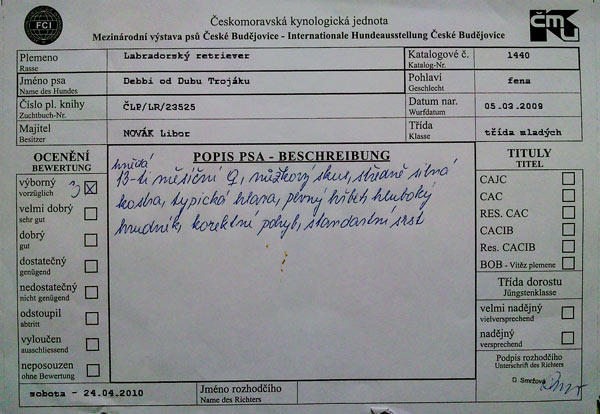 FCI
Českomoravská kynologická jednota
ČMKJ
Mezinárodní výstava psů České Budějovice - Internationale Hundeausstellung České Budějovice
Plemeno Labradorský retriever Katalogové č. 1440
Rasse Katalog-Nr.
Jméno psa Debbi od Dubu Trojáku Pohlaví fena
Name des Hundes Geschlecht
Číslo pl. knihy ČLP/LR/23525 Datum nar. 05.03.2009
Zuchtbuch-Nr. Wurfdatum
Majitel NOVÁK Libor Třída třída mladých
Besitzer Klasse
OCENĚNÍ
BEWERTUNG
výborný 3 X
vorzüglich
velmi dobrý
sehr gut
dobrý
gut
dostatečný
genügend
nedostatečný
nicht genügend
odstoupil
abtritt
vyloučen
ausschliessend
neposouzen
ohne Bewertung
POPIS PSA - BESCHREIBUNG
hnědá
13-ti měsíční ♀, nůžkový skus, středně silná
kostra, typická hlava, pevný hřbet, hluboký
hrudník, korektní pohyb, standartní srst
TITULY
TITEL
CAJC
CAC
RES. CAC
CACIB
Res. CACIB
BOB - Vítěz plemene
Třída dorostu
Jüngstenklasse
velmi nadějný
vielversprechend
nadějný
versprechend
Podpis rozhodčího
Unterschrift des Richters
Smrčová
sobota - 24.04.2010
Jméno rozhodčího
Name des Richters